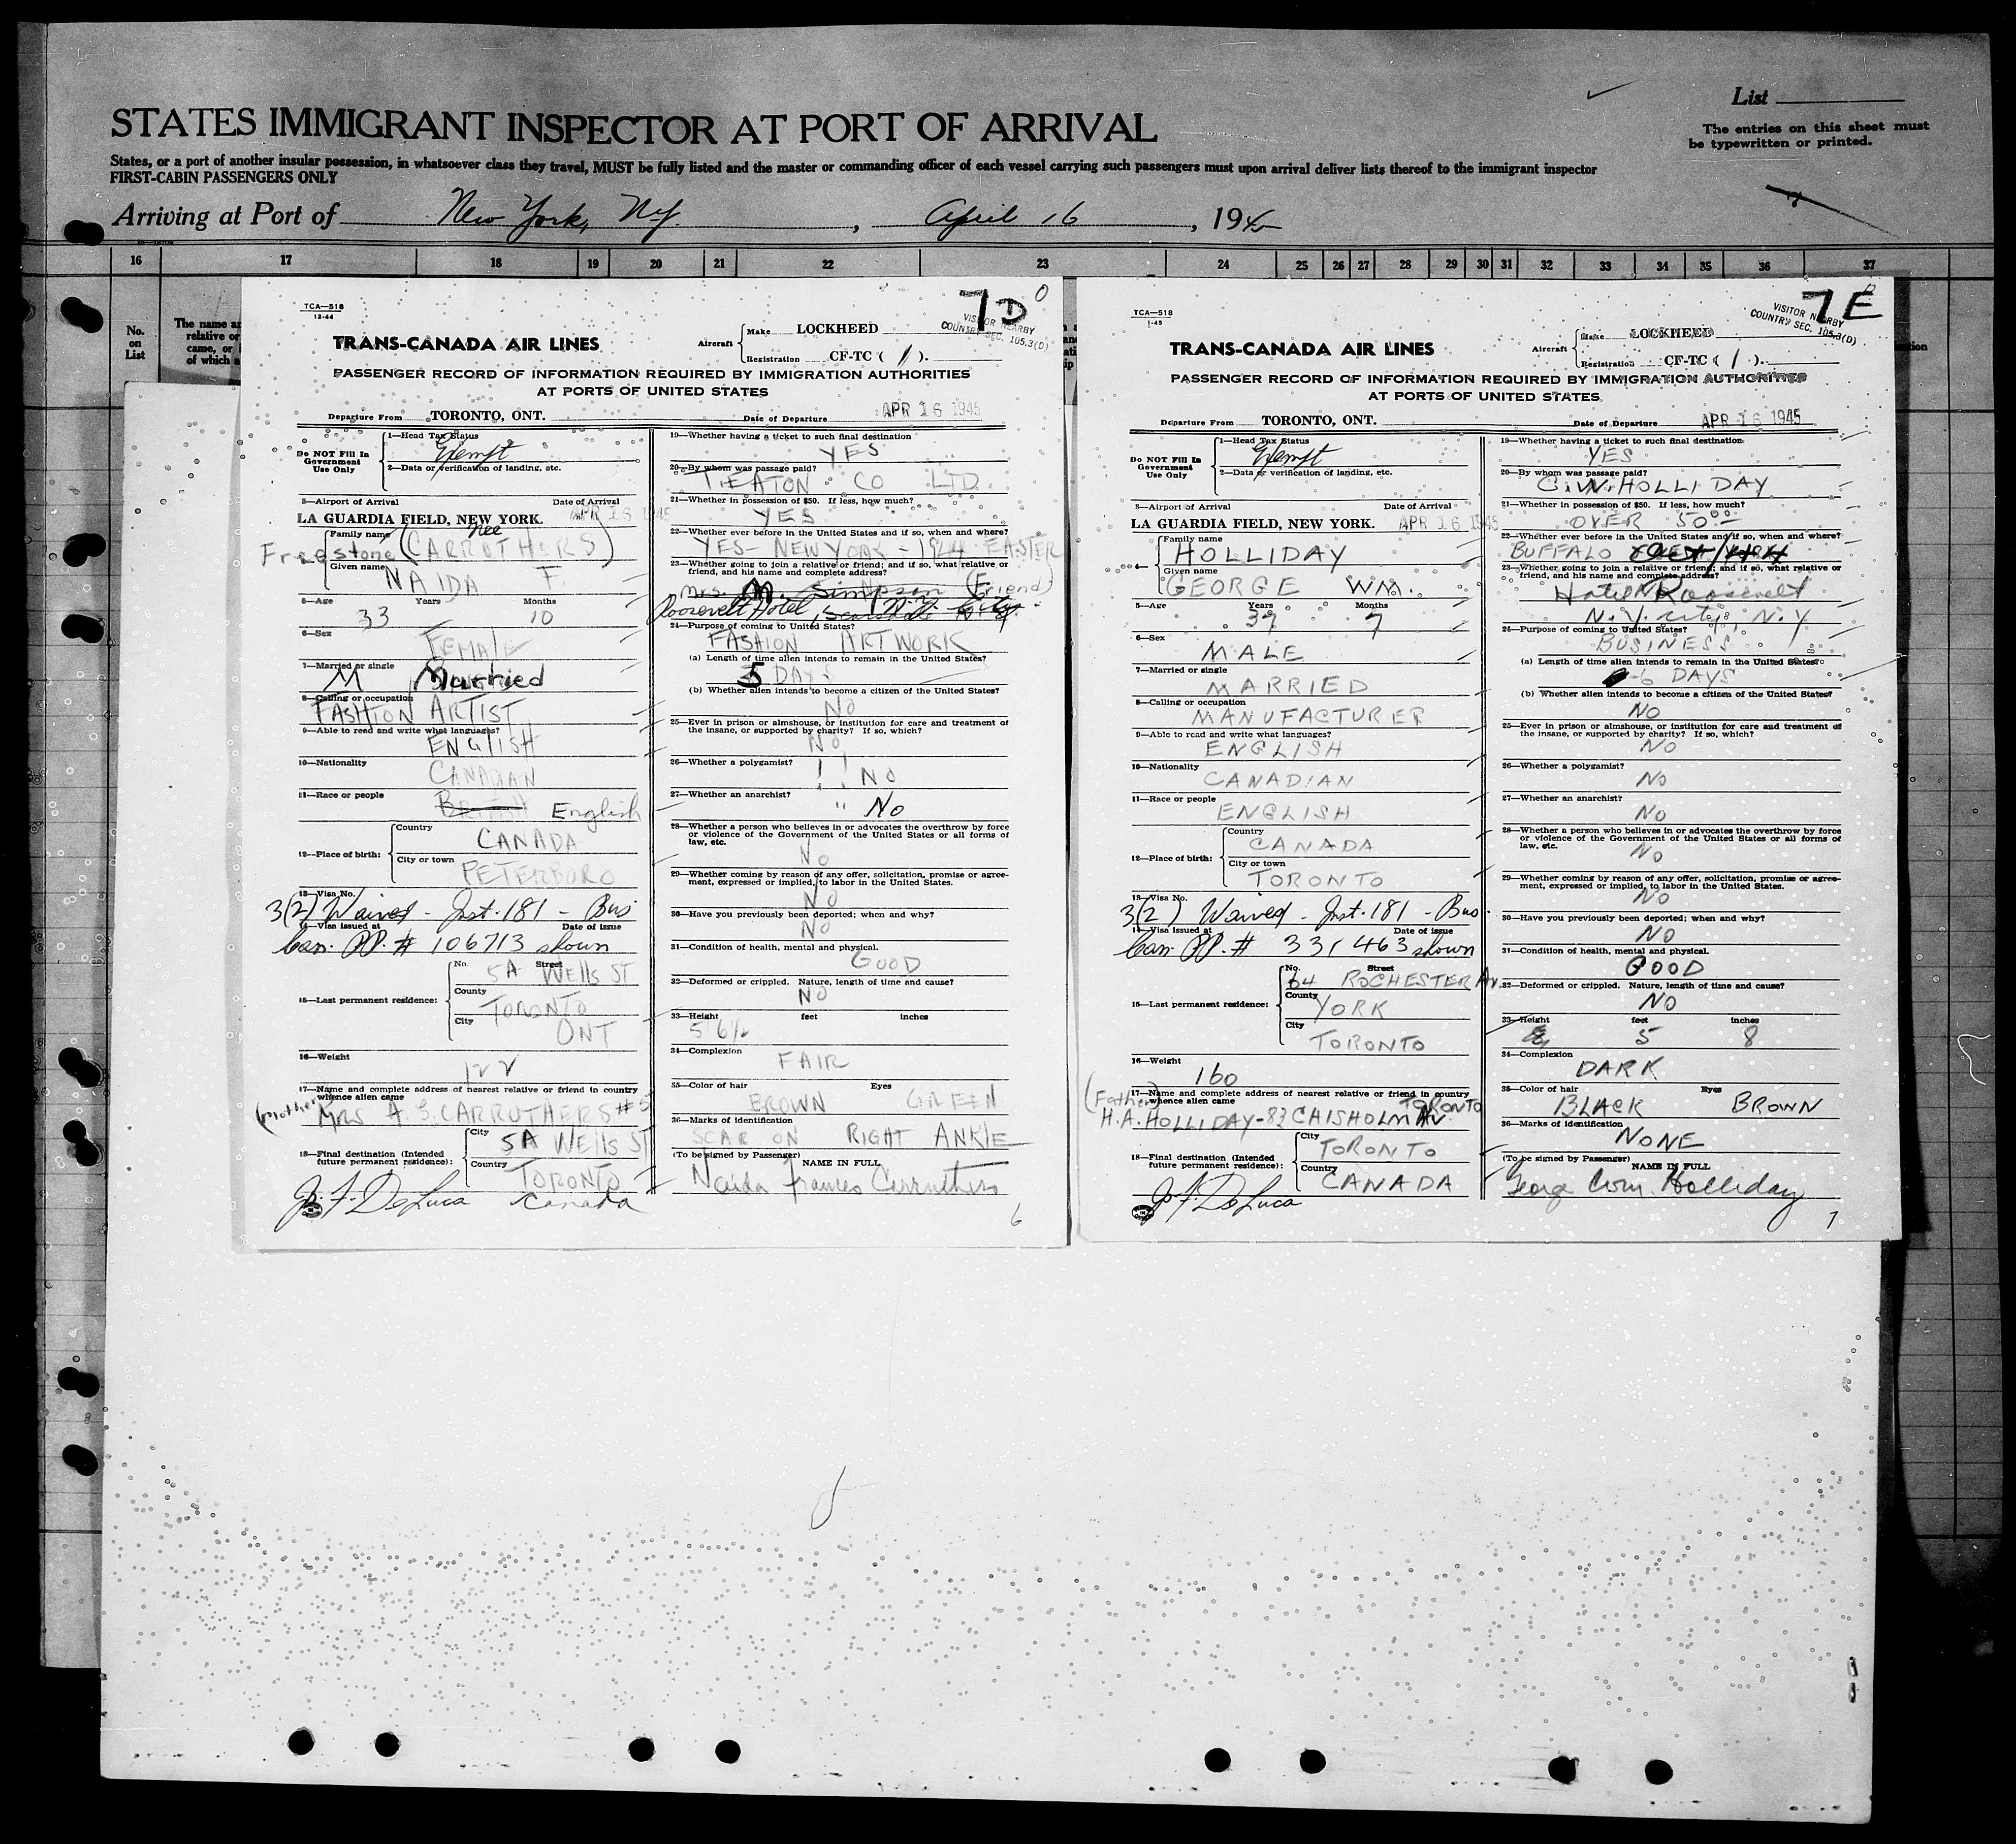 STATES IMMIGRANT INSPECTOR AT PORT OF ARRIVAL
List
The entries on this sheet must
be typewritten or printed.
States, or a port of another insular possession, in whatsoever class they travel, MUST be fully listed and the master or commanding officer of each vessel carrying such passengers must upon arrival deliver lists thereof to the immigrant inspector
FIRST-CABIN PASSENGERS ONLY
Arriving at Port of New York, N.Y. , April 16 , 194
16 17 18 19 20 21 22 23 24 25 26 27 28 29 30 31 32 33 34 35 36 37
No.
on
List
TCA—518
12-44
7D
VISITOR NEARBY
COUNTRY SEC. 105.3(D)
TRANS-CANADA AIR LINES
Aircraft Make LOCKHEED
Registration CF-TC ( 1 ).
PASSENGER RECORD OF INFORMATION REQUIRED BY IMMIGRATION AUTHORITIES
AT PORTS OF UNITED STATES
Departure From TORONTO, ONT. Date of Departure APR 16 1945
Do NOT Fill In
Government
Use Only
1—Head Tax Status
Exempt
2—Data or verification of landing, etc.
3—Airport of Arrival Date of Arrival
LA GUARDIA FIELD, NEW YORK. APR 16 1945
Family name Nee
Freestone (CARROTHERS)
Given name NAIDA F
5—Age Years Months
33 10
6—Sex
FEMALE
7—Married or single
M Married
8—Calling or occupation
FASHION ARTIST
9—Able to read and write what languages?
ENGLISH
10—Nationality
CANADIAN
11—Race or people
English
12—Place of birth:
Country
CANADA
City or town
PETERBORO
13—Visa No.
3(2) Waived - Inst. 181 - Bus
14—Visa issued at Date of issue
Can. PP. # 106713 shown
15—Last permanent residence:
No. Street
5A Wells ST
County
TORONTO
City
ONT
16—Weight
122
17—Name and complete address of nearest relative or friend in country
whence alien came
(mother) MRS A. S. CARRUTHERS #5
18—Final destination (Intended
future permanent residence):
City
5A Wells ST
Country
TORONTO
Canada
J. F. DeLuca
19—Whether having a ticket to such final destination
YES
20—By whom was passage paid?
T. EATON CO LTD.
21—Whether in possession of $50. If less, how much?
YES
22—Whether ever before in the United States and if so, when and where?
YES - NEW YORK - 1944 EASTER
23—Whether going to join a relative or friend; and if so, what relative or
friend, and his name and complete address?
Mrs. M. Simpson (Friend)
Roosevelt Hotel, Scarsdale
24—Purpose of coming to United States?
FASHION ARTWORK
(a) Length of time alien intends to remain in the United States?
5 DAYS
(b) Whether alien intends to become a citizen of the United States?
NO
25—Ever in prison or almshouse, or institution for care and treatment of
the insane, or supported by charity? If so, which?
NO
26—Whether a polygamist?
NO
27—Whether an anarchist?
" NO
28—Whether a person who believes in or advocates the overthrow by force
or violence of the Government of the United States or all forms of
law, etc.
NO
29—Whether coming by reason of any offer, solicitation, promise or agree-
ment, expressed or implied, to labor in the United States.
NO
30—Have you previously been deported; when and why?
NO
31—Condition of health, mental and physical.
GOOD
32—Deformed or crippled. Nature, length of time and cause?
NO
33—Height feet inches
5 6½
34—Complexion
FAIR
35—Color of hair Eyes
BROWN GREEN
36—Marks of identification
SCAR ON RIGHT ANKLE
(To be signed by Passenger) NAME IN FULL
Naida Frances Carruthers
6
TCA—518
1-45
7E
VISITOR NEARBY
COUNTRY SEC. 105.3(D)
TRANS-CANADA AIR LINES
Aircraft Make LOCKHEED
Registration CF-TC ( 1 ).
PASSENGER RECORD OF INFORMATION REQUIRED BY IMMIGRATION AUTHORITIES
AT PORTS OF UNITED STATES
Departure From TORONTO, ONT. Date of Departure APR 16 1945
Do NOT Fill In
Government
Use Only
1—Head Tax Status
Exempt
2—Data or verification of landing, etc.
3—Airport of Arrival Date of Arrival
LA GUARDIA FIELD, NEW YORK. APR 16 1945
4—
Family name
HOLLIDAY
Given name
GEORGE WM.
5—Age Years Months
39 7
6—Sex
MALE
7—Married or single
MARRIED
8—Calling or occupation
MANUFACTURER
9—Able to read and write what languages?
ENGLISH
10—Nationality
CANADIAN
11—Race or people
ENGLISH
12—Place of birth:
Country
CANADA
City or town
TORONTO
13—Visa No.
3(2) Waived - Inst. 181 - Bus.
14—Visa issued at Date of issue
Can. PP. # 331463 shown
15—Last permanent residence:
No. Street
64 ROCHESTER AV.
County
YORK
City
TORONTO
16—Weight
160
17—Name and complete address of nearest relative or friend in country
whence alien came
(Father) TORONTO
H.A. HOLLIDAY - 83 CHISHOLM AV
18—Final destination (Intended
future permanent residence):
City
TORONTO
Country
CANADA
J. F. DeLuca
19—Whether having a ticket to such final destination
YES
20—By whom was passage paid?
G. W. HOLLIDAY
21—Whether in possession of $50. If less, how much?
OVER 50.00
22—Whether ever before in the United States and if so, when and where?
BUFFALO
23—Whether going to join a relative or friend; and if so, what relative or
friend, and his name and complete address?
Hotel Roosevelt
N.Y. city, N.Y
24—Purpose of coming to United States?
BUSINESS
(a) Length of time alien intends to remain in the United States?
6 DAYS
(b) Whether alien intends to become a citizen of the United States?
NO
25—Ever in prison or almshouse, or institution for care and treatment of
the insane, or supported by charity? If so, which?
NO
26—Whether a polygamist?
NO
27—Whether an anarchist?
NO
28—Whether a person who believes in or advocates the overthrow by force
or violence of the Government of the United States or all forms of
law, etc.
NO
29—Whether coming by reason of any offer, solicitation, promise or agree-
ment, expressed or implied, to labor in the United States.
NO
30—Have you previously been deported; when and why?
NO
31—Condition of health, mental and physical.
GOOD
32—Deformed or crippled. Nature, length of time and cause?
NO
33—Height feet inches
5 8
34—Complexion
DARK
35—Color of hair Eyes
BLACK BROWN
36—Marks of identification
NONE
(To be signed by Passenger) NAME IN FULL
George Wm. Holliday
7